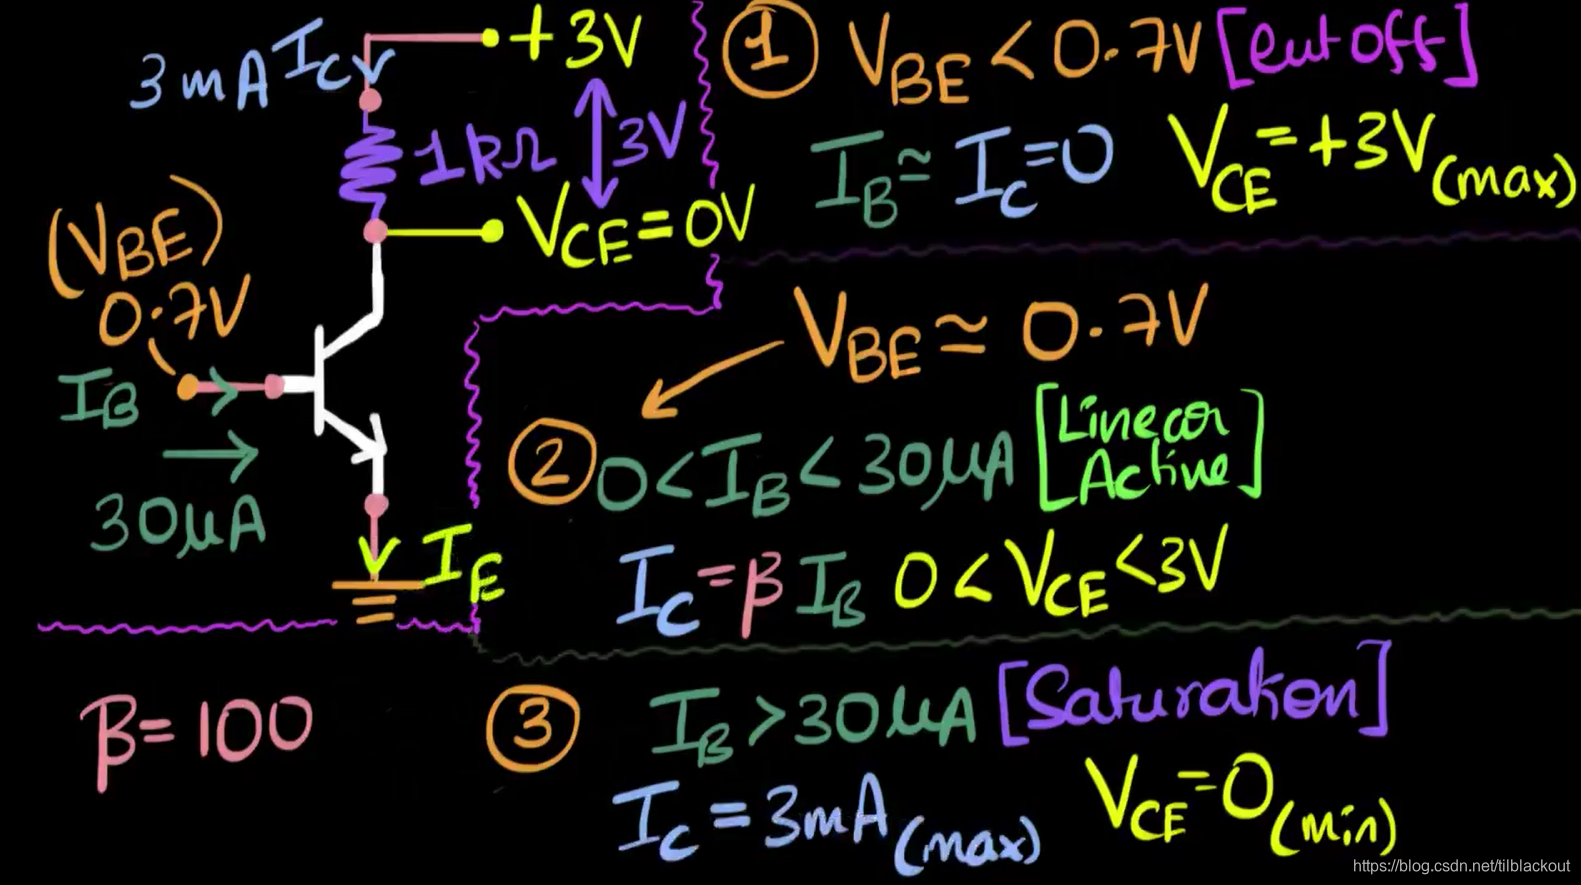 3mA I_C
+3V
1kΩ
3V
V_CE=0V
(V_BE)
0.7V
I_B
30μA
I_E
β=100
① V_BE<0.7V [Cutoff]
I_B≃I_C=0 V_CE=+3V(max)
V_BE≃0.7V
② 0<I_B<30μA [Linear Active]
I_C=βI_B 0<V_CE<3V
③ I_B>30μA [Saturation]
I_C=3mA(max) V_CE=0(min)
https://blog.csdn.net/tilblackout